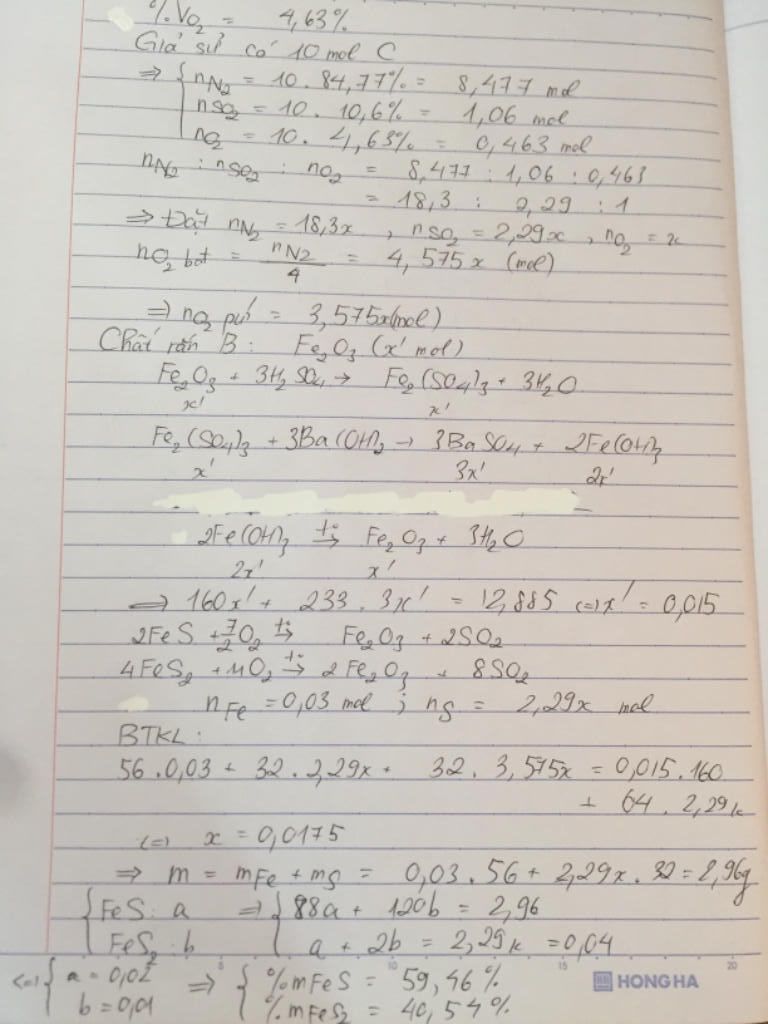 %VO₂ = 4,63%
Giả sử có 10 mol C
⇒ { nN₂ = 10 . 84,77% = 8,477 mol
nSO₂ = 10 . 10,6% = 1,06 mol
nO₂ = 10 . 4,63% = 0,463 mol
nN₂ : nSO₂ : nO₂ = 8,477 : 1,06 : 0,463
= 18,3 : 2,29 : 1
⇒ Đặt nN₂ = 18,3x , nSO₂ = 2,29x , nO₂ = x
nO₂ bđ = nN₂/4 = 4,575x (mol)
⇒ nO₂ pứ = 3,575x (mol)
Chất rắn B : Fe₂O₃ (x' mol)
Fe₂O₃ + 3H₂SO₄ → Fe₂(SO₄)₃ + 3H₂O
x' x'
Fe₂(SO₄)₃ + 3Ba(OH)₂ → 3BaSO₄ + 2Fe(OH)₃
x' 3x' 2x'
2Fe(OH)₃ t°→ Fe₂O₃ + 3H₂O
2x' x'
⇒ 160x' + 233 . 3x' = 12,885 (=) x' = 0,015
2FeS + 7/2 O₂ t°→ Fe₂O₃ + 2SO₂
4FeS₂ + 11O₂ t°→ 2Fe₂O₃ + 8SO₂
nFe = 0,03 mol ; nS = 2,29x mol
BTKL :
56 . 0,03 + 32 . 2,29x + 32 . 3,575x = 0,015 . 160
+ 64 . 2,29x
(=) x = 0,0175
⇒ m = mFe + mS = 0,03 . 56 + 2,29x . 32 = 2,96g
{ FeS : a ⇒ { 88a + 120b = 2,96
FeS₂ : b a + 2b = 2,29x = 0,04
(=) { a = 0,02 ⇒ { %mFeS = 59,46%
b = 0,01 %mFeS₂ = 40,54%
5 10 15 20
HH HONG HA